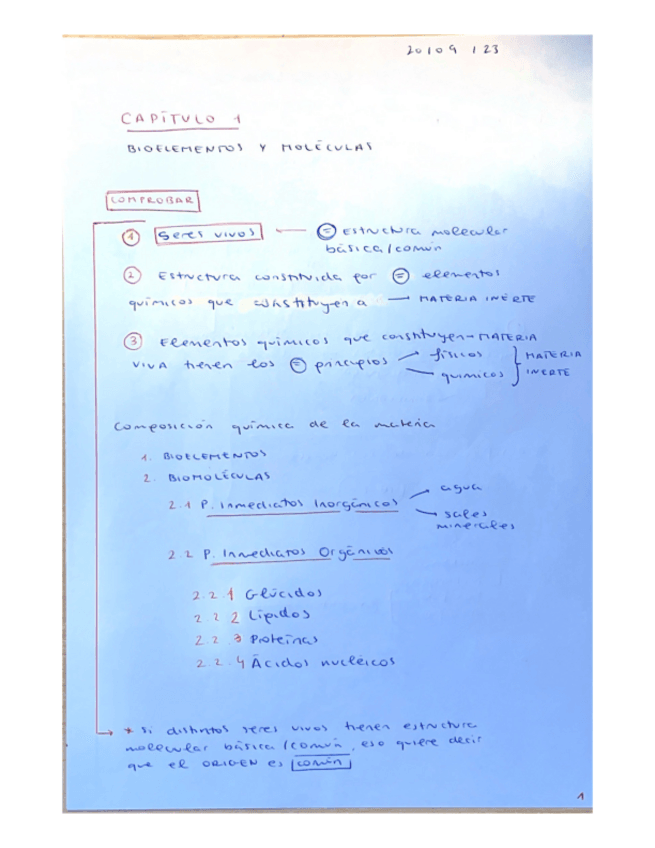 20/09/23
CAPÍTULO 1
BIOELEMENTOS Y MOLÉCULAS
COMPROBAR
① Seres vivos — = Estructura molecular
básica/común
② Estructura constituida por = elementos
químicos que constituyen a — MATERIA INERTE
③ Elementos químicos que constituyen → MATERIA
VIVA tienen los = principios → físicos
→ químicos } MATERIA
INERTE
Composición química de la materia
1. BIOELEMENTOS
2. BIOMOLÉCULAS
2.1 P. Inmediatos Inorgánicos → agua
→ sales
minerales
2.2 P. Inmediatos Orgánicos
2.2.1 Glúcidos
2.2.2 Lípidos
2.2.3 Proteínas
2.2.4 Ácidos nucléicos
* Si distintos seres vivos tienen estructura
molecular básica/común, eso quiere decir
que el ORIGEN es común
1